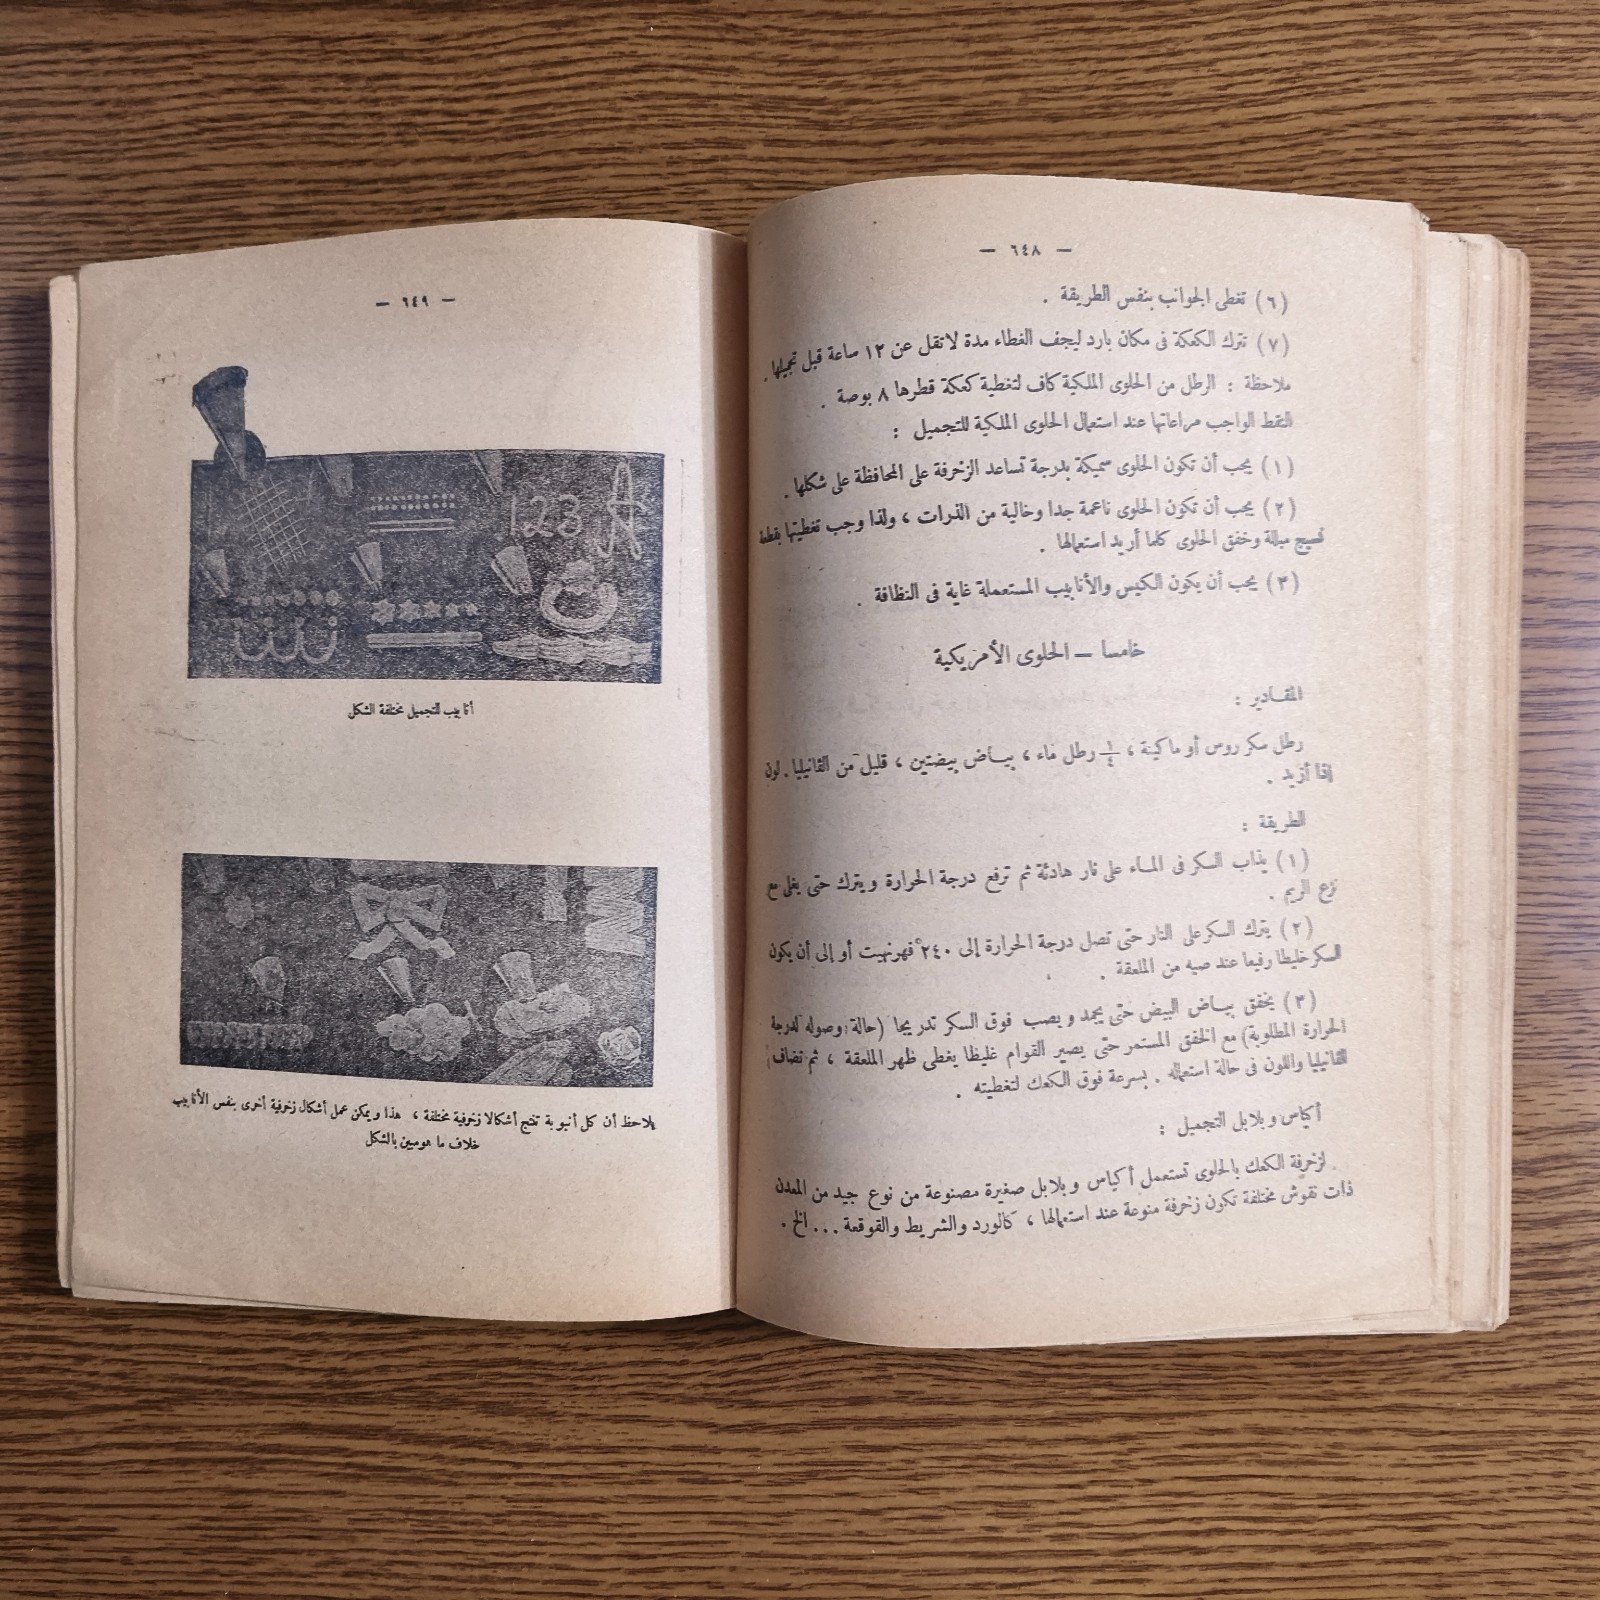 — ٦٤٨ —
(٦) تغطى الجوانب بنفس الطريقة .
(٧) تترك الكعكة فى مكان بارد ليجف الغطاء مدة لاتقل عن ١٢ ساعة قبل تجميلها .
ملاحظة : الرطل من الحلوى الملكية كاف لتغطية كعكة قطرها ٨ بوصة .
النقط الواجب مراعاتها عند استعمال الحلوى الملكية للتجميل :
(١) يجب أن تكون الحلوى سميكة بدرجة تساعد الزخرفة على المحافظة على شكلها .
(٢) يجب أن تكون الحلوى ناعمة جدا وخالية من الذرات ، ولذا وجب تغطيتها بقطعة
نسيج مبللة وخفق الحلوى كلما أريد استعمالها .
(٣) يجب أن يكون الكيس والأنابيب المستعملة غاية فى النظافة .
خامسا — الحلوى الأمريكية
المقادير :
رطل سكر روس أو ماكينة ، ١/٤ رطل ماء ، بيـاض بيضتين ، قليل من الڤانيليا . لون
إذا أريد .
الطريقة :
(١) يذاب السكر فى المـاء على نار هادئة ثم ترفع درجة الحرارة ويترك حتى يغلى مع
نزع الريم .
(٢) يترك السكر على النار حتى تصل درجة الحرارة إلى ٢٤٠° فهرنهيت أو إلى أن يكون
السكر خليطا رفيعا عند صبه من الملعقة .
(٣) يخفق بيـاض البيض حتى يجمد ويصب فوق السكر تدريجا (حالة وصوله لدرجة
الحرارة المطلوبة) مع الخفق المستمر حتى يصير القوام غليظا يغطى ظهر الملعقة ، ثم تضاف
الڤانيليا واللون فى حالة استعماله . بسرعة فوق الكعك لتغطيته .
أكياس وبلابل التجميل :
لزخرفة الكعك بالحلوى تستعمل أكياس وبلابل صغيرة مصنوعة من نوع جيد من المعدن
ذات نقوش مختلفة تكون زخرفة منوعة عند استعمالها ، كالورد والشريط والقوقعة ... الخ .
— ٦٤٩ —
123 A
أنابيب للتجميل مختلفة الشكل
يلاحظ أن كل أنبوبة تنتج أشكالا زخرفية مختلفة ، هذا ويمكن عمل أشكال زخرفية أخرى بنفس الأنابيب
خلاف ما هو مبين بالشكل